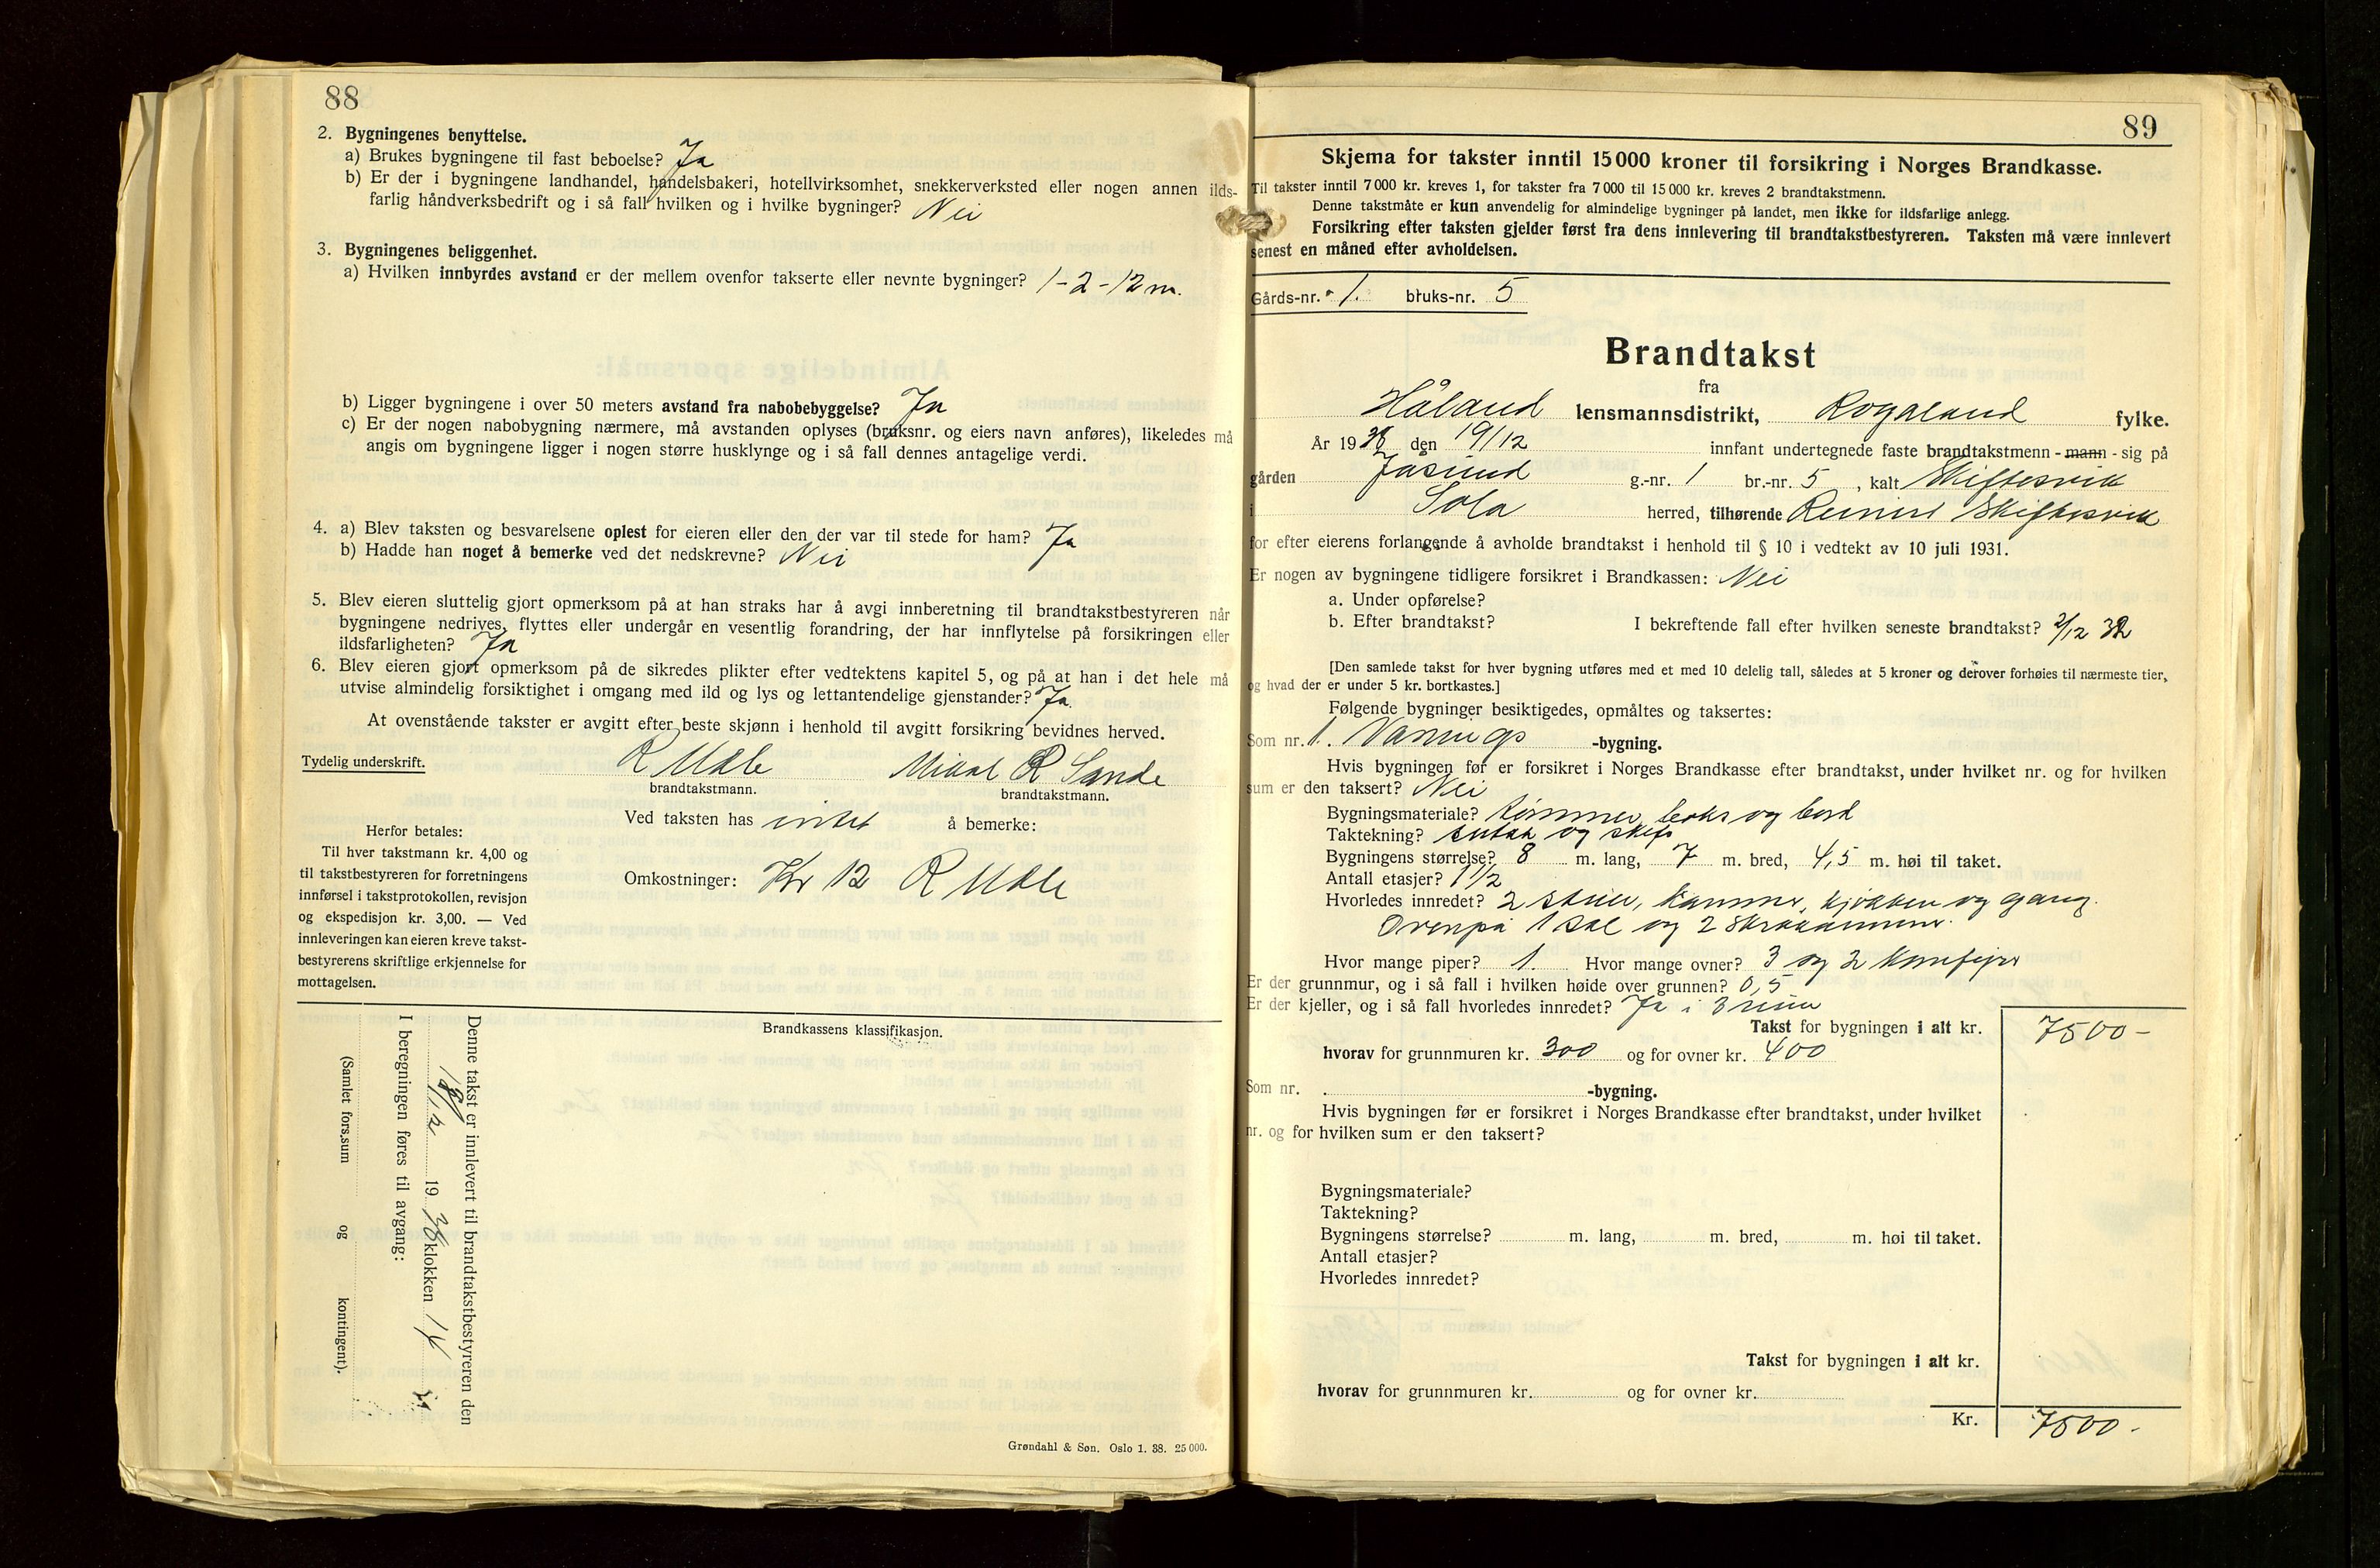 88
2. Bygningenes benyttelse.
a) Brukes bygningene til fast beboelse? Ja
b) Er der i bygningene landhandel, handelsbakeri, hotellvirksomhet, snekkerverksted eller nogen annen ilds-
farlig håndverksbedrift og i så fall hvilken og i hvilke bygninger? Nei
3. Bygningenes beliggenhet.
a) Hvilken innbyrdes avstand er der mellem ovenfor takserte eller nevnte bygninger? 1-2-12 m.
b) Ligger bygningene i over 50 meters avstand fra nabobebyggelse? Ja
c) Er der nogen nabobygning nærmere, må avstanden oplyses (bruksnr. og eiers navn anføres), likeledes må
angis om bygningene ligger i nogen større husklynge og i så fall dennes antagelige verdi.
4. a) Blev taksten og besvarelsene oplest for eieren eller den der var til stede for ham? Ja
b) Hadde han noget å bemerke ved det nedskrevne? Nei
5. Blev eieren sluttelig gjort opmerksom på at han straks har å avgi innberetning til brandtakstbestyreren når
bygningene nedrives, flyttes eller undergår en vesentlig forandring, der har innflytelse på forsikringen eller
ildsfarligheten? Ja
6. Blev eieren gjort opmerksom på de sikredes plikter efter vedtektens kapitel 5, og på at han i det hele må
utvise almindelig forsiktighet i omgang med ild og lys og lettantendelige gjenstander? Ja.
At ovenstående takster er avgitt efter beste skjønn i henhold til avgitt forsikring bevidnes herved.
Tydelig underskrift. R Melle Mikal R Sande
brandtakstmann. brandtakstmann.
Ved taksten has intet å bemerke:
Herfor betales:
Til hver takstmann kr. 4,00 og
til takstbestyreren for forretningens
innførsel i takstprotokollen, revisjon
og ekspedisjon kr. 3,00. — Ved
innleveringen kan eieren kreve takst-
bestyrerens skriftlige erkjennelse for
mottagelsen.
Omkostninger: Kr 12 R Melle
Brandkassens klassifikasjon.
Denne takst er innlevert til brandtakstbestyreren den
19 38 klokken
I beregningen føres til avgang:
(Samlet fors.sum og kontingent).
Grøndahl & Søn. Oslo 1. 38. 25 000.
89
Skjema for takster inntil 15 000 kroner til forsikring i Norges Brandkasse.
Til takster inntil 7 000 kr. kreves 1, for takster fra 7 000 til 15 000 kr. kreves 2 brandtakstmenn.
Denne takstmåte er kun anvendelig for almindelige bygninger på landet, men ikke for ildsfarlige anlegg.
Forsikring efter taksten gjelder først fra dens innlevering til brandtakstbestyreren. Taksten må være innlevert
senest en måned efter avholdelsen.
Gårds-nr. 1. bruks-nr. 5
Brandtakst
fra
Håland lensmannsdistrikt, Rogaland fylke.
År 1938 den 19/12 innfant undertegnede faste brandtakstmenn - mann - sig på
gården Jåsund g.-nr. 1 br.-nr. 5, kalt Skiftesvik
i Sola herred, tilhørende Skiftesvik
for efter eierens forlangende å avholde brandtakst i henhold til § 10 i vedtekt av 10 juli 1931.
Er nogen av bygningene tidligere forsikret i Brandkassen: Nei
a. Under opførelse?
b. Efter brandtakst? I bekreftende fall efter hvilken seneste brandtakst? 2/12 32
[Den samlede takst for hver bygning utføres med et med 10 delelig tall, således at 5 kroner og derover forhøies til nærmeste tier,
og hvad der er under 5 kr. bortkastes.]
Følgende bygninger besiktigedes, opmåltes og taksertes:
Som nr. 1. Vånings -bygning.
Hvis bygningen før er forsikret i Norges Brandkasse efter brandtakst, under hvilket nr. og for hvilken
sum er den taksert? Nei
Bygningsmateriale? tømmer og bord
Taktekning? og skifr
Bygningens størrelse? 8 m. lang, 7 m. bred, 4,5 m. høi til taket.
Antall etasjer? 1 1/2
Hvorledes innredet? 2 stuer, kammer, kjøkken og gang.
Ovenpå 1 sal og 2 skråkammer.
Hvor mange piper? 1. Hvor mange ovner? 3 og 2 komfyrer
Er der grunnmur, og i så fall i hvilken høide over grunnen? 0,5
Er der kjeller, og i så fall hvorledes innredet? Ja i 3 rum
Takst for bygningen i alt kr. 7500-
hvorav for grunnmuren kr. 300 og for ovner kr. 400
Som nr. -bygning.
Hvis bygningen før er forsikret i Norges Brandkasse efter brandtakst, under hvilket
nr. og for hvilken sum er den taksert?
Bygningsmateriale?
Taktekning?
Bygningens størrelse? m. lang, m. bred, m. høi til taket.
Antall etasjer?
Hvorledes innredet?
Takst for bygningen i alt kr.
hvorav for grunnmuren kr. og for ovner kr.
Kr. 7500-